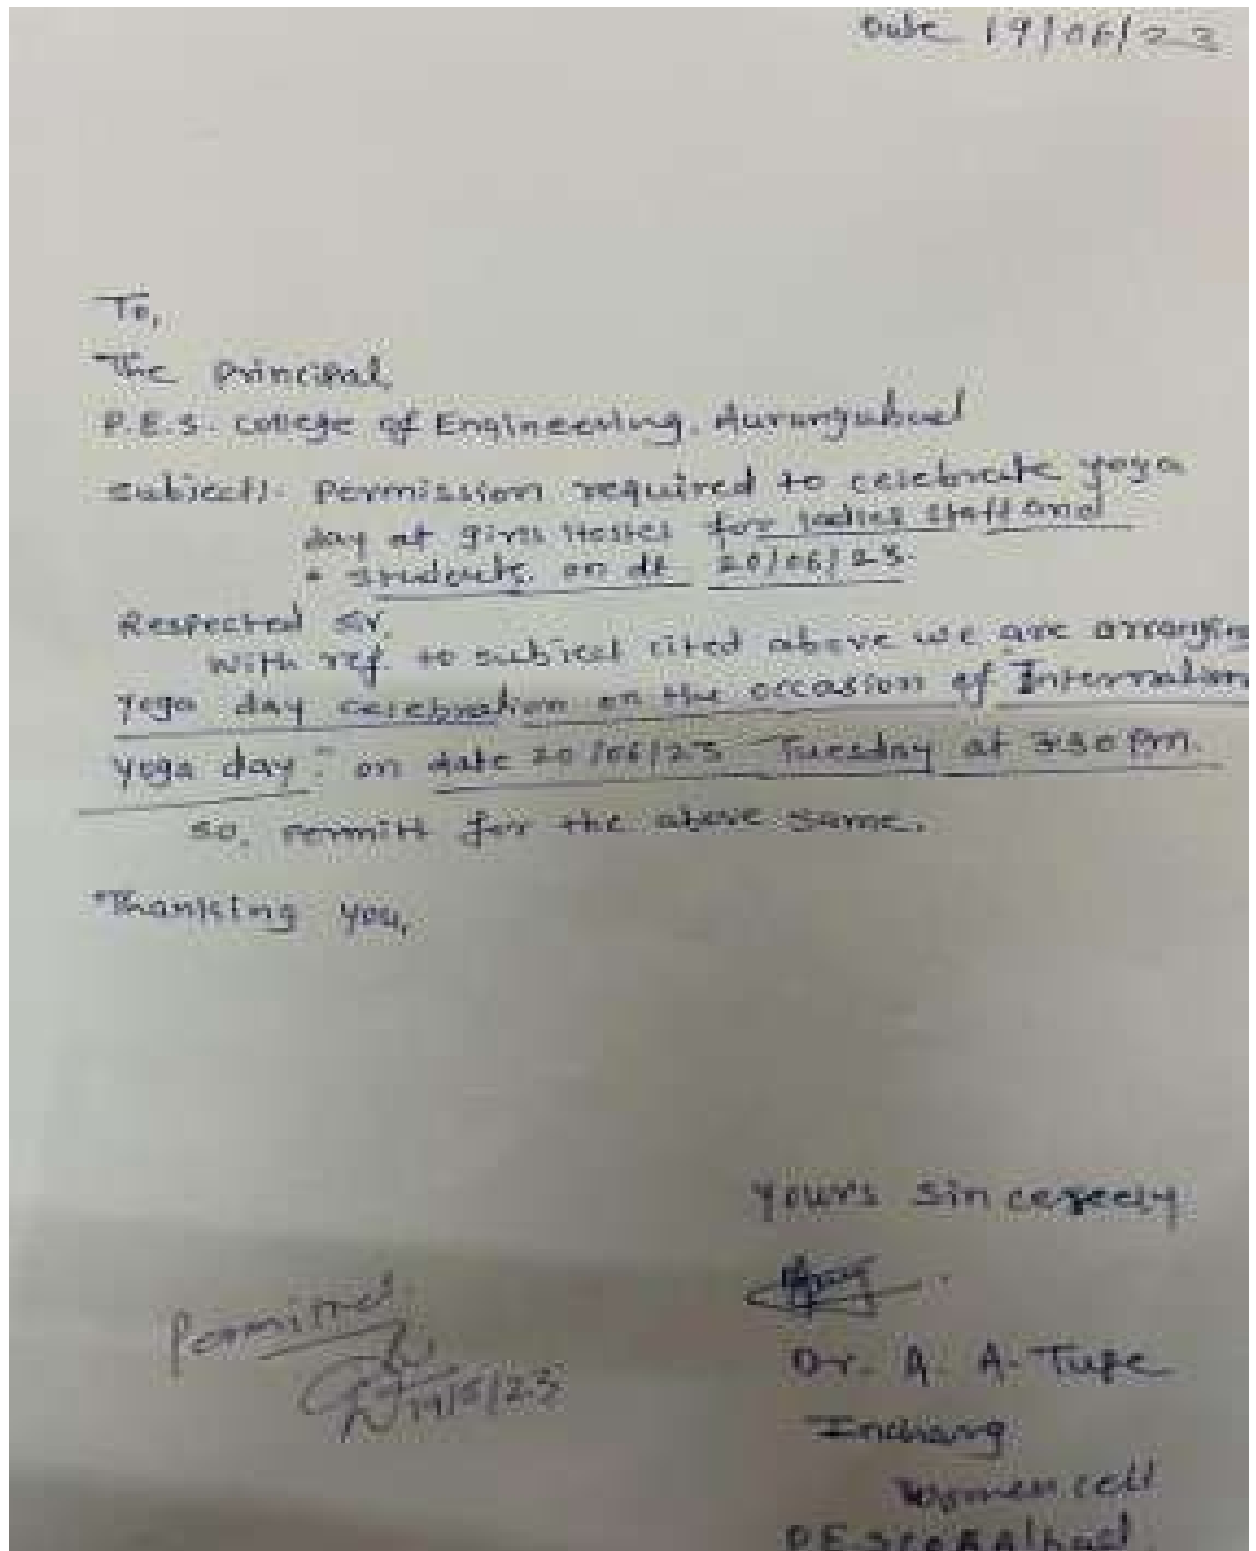 Date 19/06/23
To,
The Principal,
P.E.S. college of Engineering, Aurangabad
subject:- Permission required to celebrate yoga
day at girls Hostel for ladies staff and
students on dt 20/06/23.
Respected sir,
With ref. to subject cited above we are arranging
yoga day celebration on the occasion of Internation
yoga day." on date 20/06/23 Tuesday at 3:30 pm.
so, permitt for the above same.
Thanking you,
yours sincerely
Dr. A. A. Tupe
Incharg
Women cell
Permitted